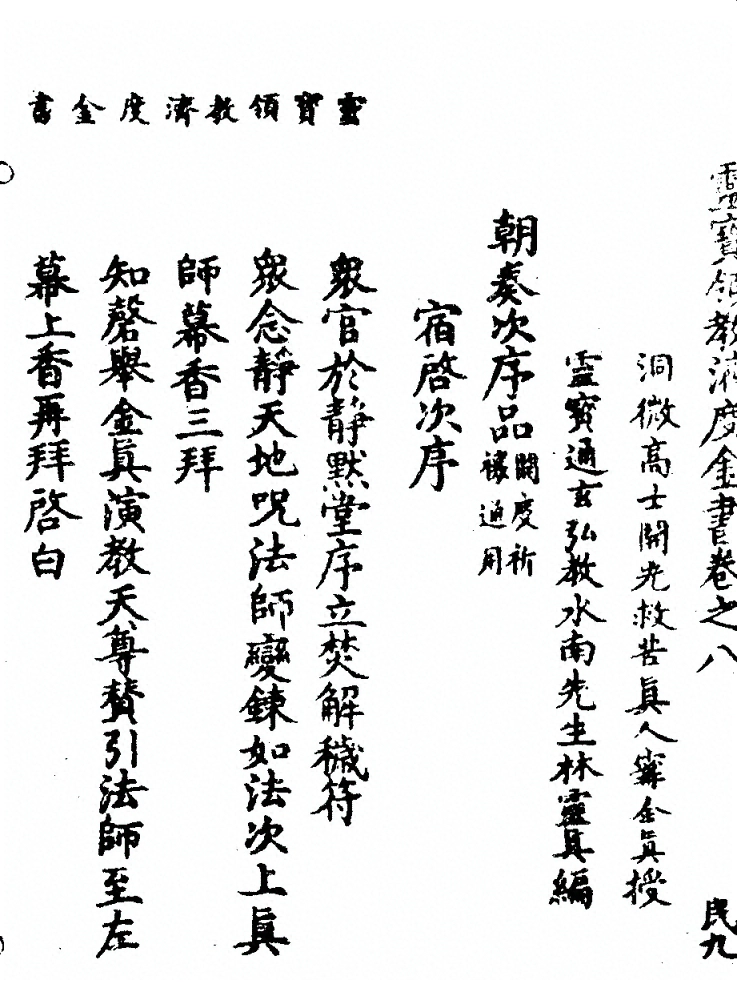 靈寶領教濟度金書
靈寶領教濟度金書卷之八 民九
洞微高士開光救苦眞人寗全眞授
靈寶通玄弘教水南先生林靈眞編
朝奏次序品 開度祈禳通用
宿啓次序
衆官於靜默堂序立焚解穢符
衆念靜天地呪法師變鍊如法次上眞
師幕香三拜
知磬舉金眞演教天尊贊引法師至左
幕上香再拜啓白